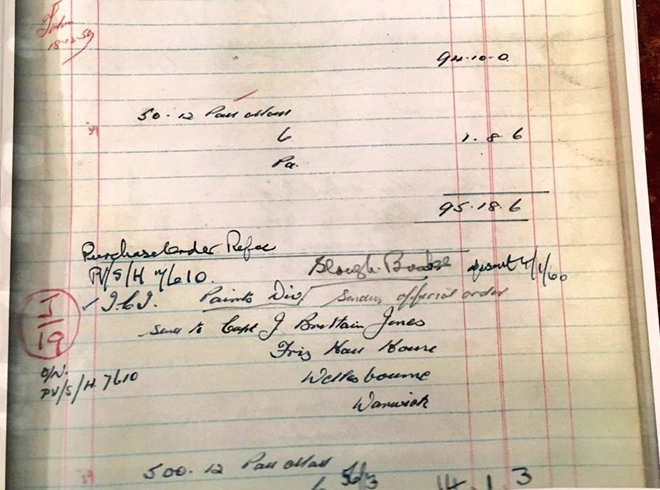 18-12-59
94-10-0
50-12 Pall Mall
6 1-8-6
Pa.
95-18-6
Purchase order Refce
PV/S/H 7610. Slough 4/1/60
✓ I.C.I. Paints Div Sending official order
Send to Capt J Brittain Jones
House
Wellesbourne
Warwick
O/N.
PV/S/H 7610
500-12 Pall Mall 56/3
6 14 1 3